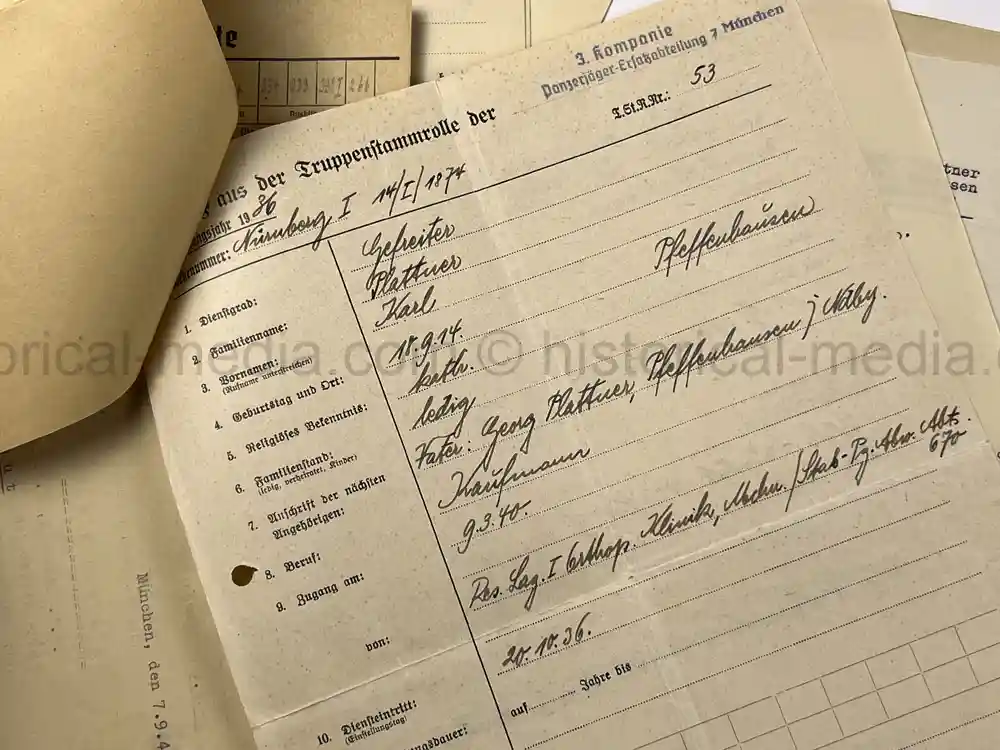 3. Kompanie
Panzerjäger-Ersatzabteilung 7 München
T.St.R.Nr.: 53
aus der Truppenstammrolle der
gsjahr 1936
name: Nürnberg I 14/I/1874
1. Dienstgrad: Gefreiter
2. Familienname: Plattner
3. Vornamen: Karl
(Rufname unterstreichen)
4. Geburtstag und Ort: 18.9.14. Pfeffenhausen
5. Religiöses Bekenntnis: kath.
6. Familienstand: ledig
(ledig, verheiratet, Kinder)
7. Anschrift der nächsten Angehörigen: Vater: Georg Plattner, Pfeffenhausen / Ndby.
8. Beruf: Kaufmann
9. Zugang am: 9.3.40.
von: Res. Laz. I Orthop. Klinik, Mchn. / Stab-Pz. Abw. Abt. 670
10. Diensteintritt: 20.10.36.
(Einstellungstag)
gsdauer: auf Jahre bis
München, den 7.9.4
tner
sen
historical-media.com © historical-media.